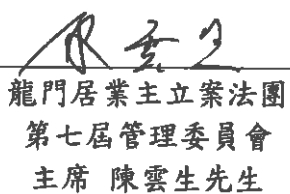 龍門居業主立案法團
第七屆管理委員會
主席 陳雲生先生